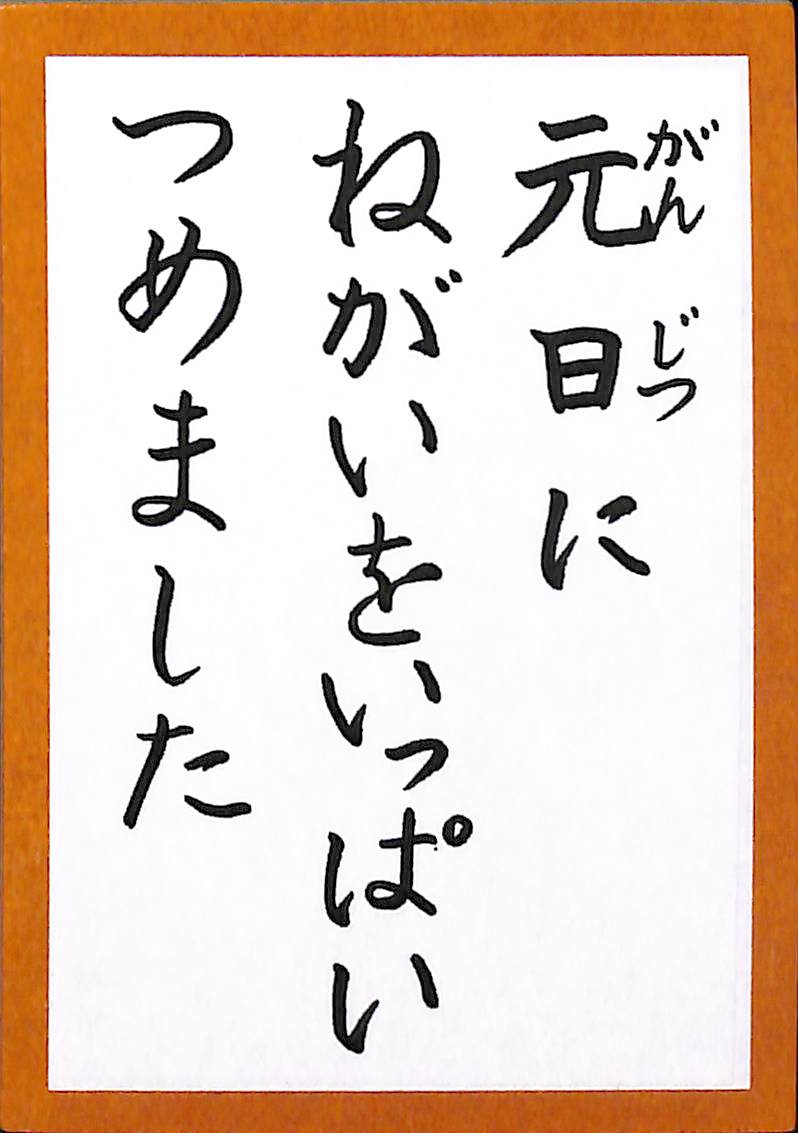 元日に
がんじつ
ねがいをいっぱい
つめました